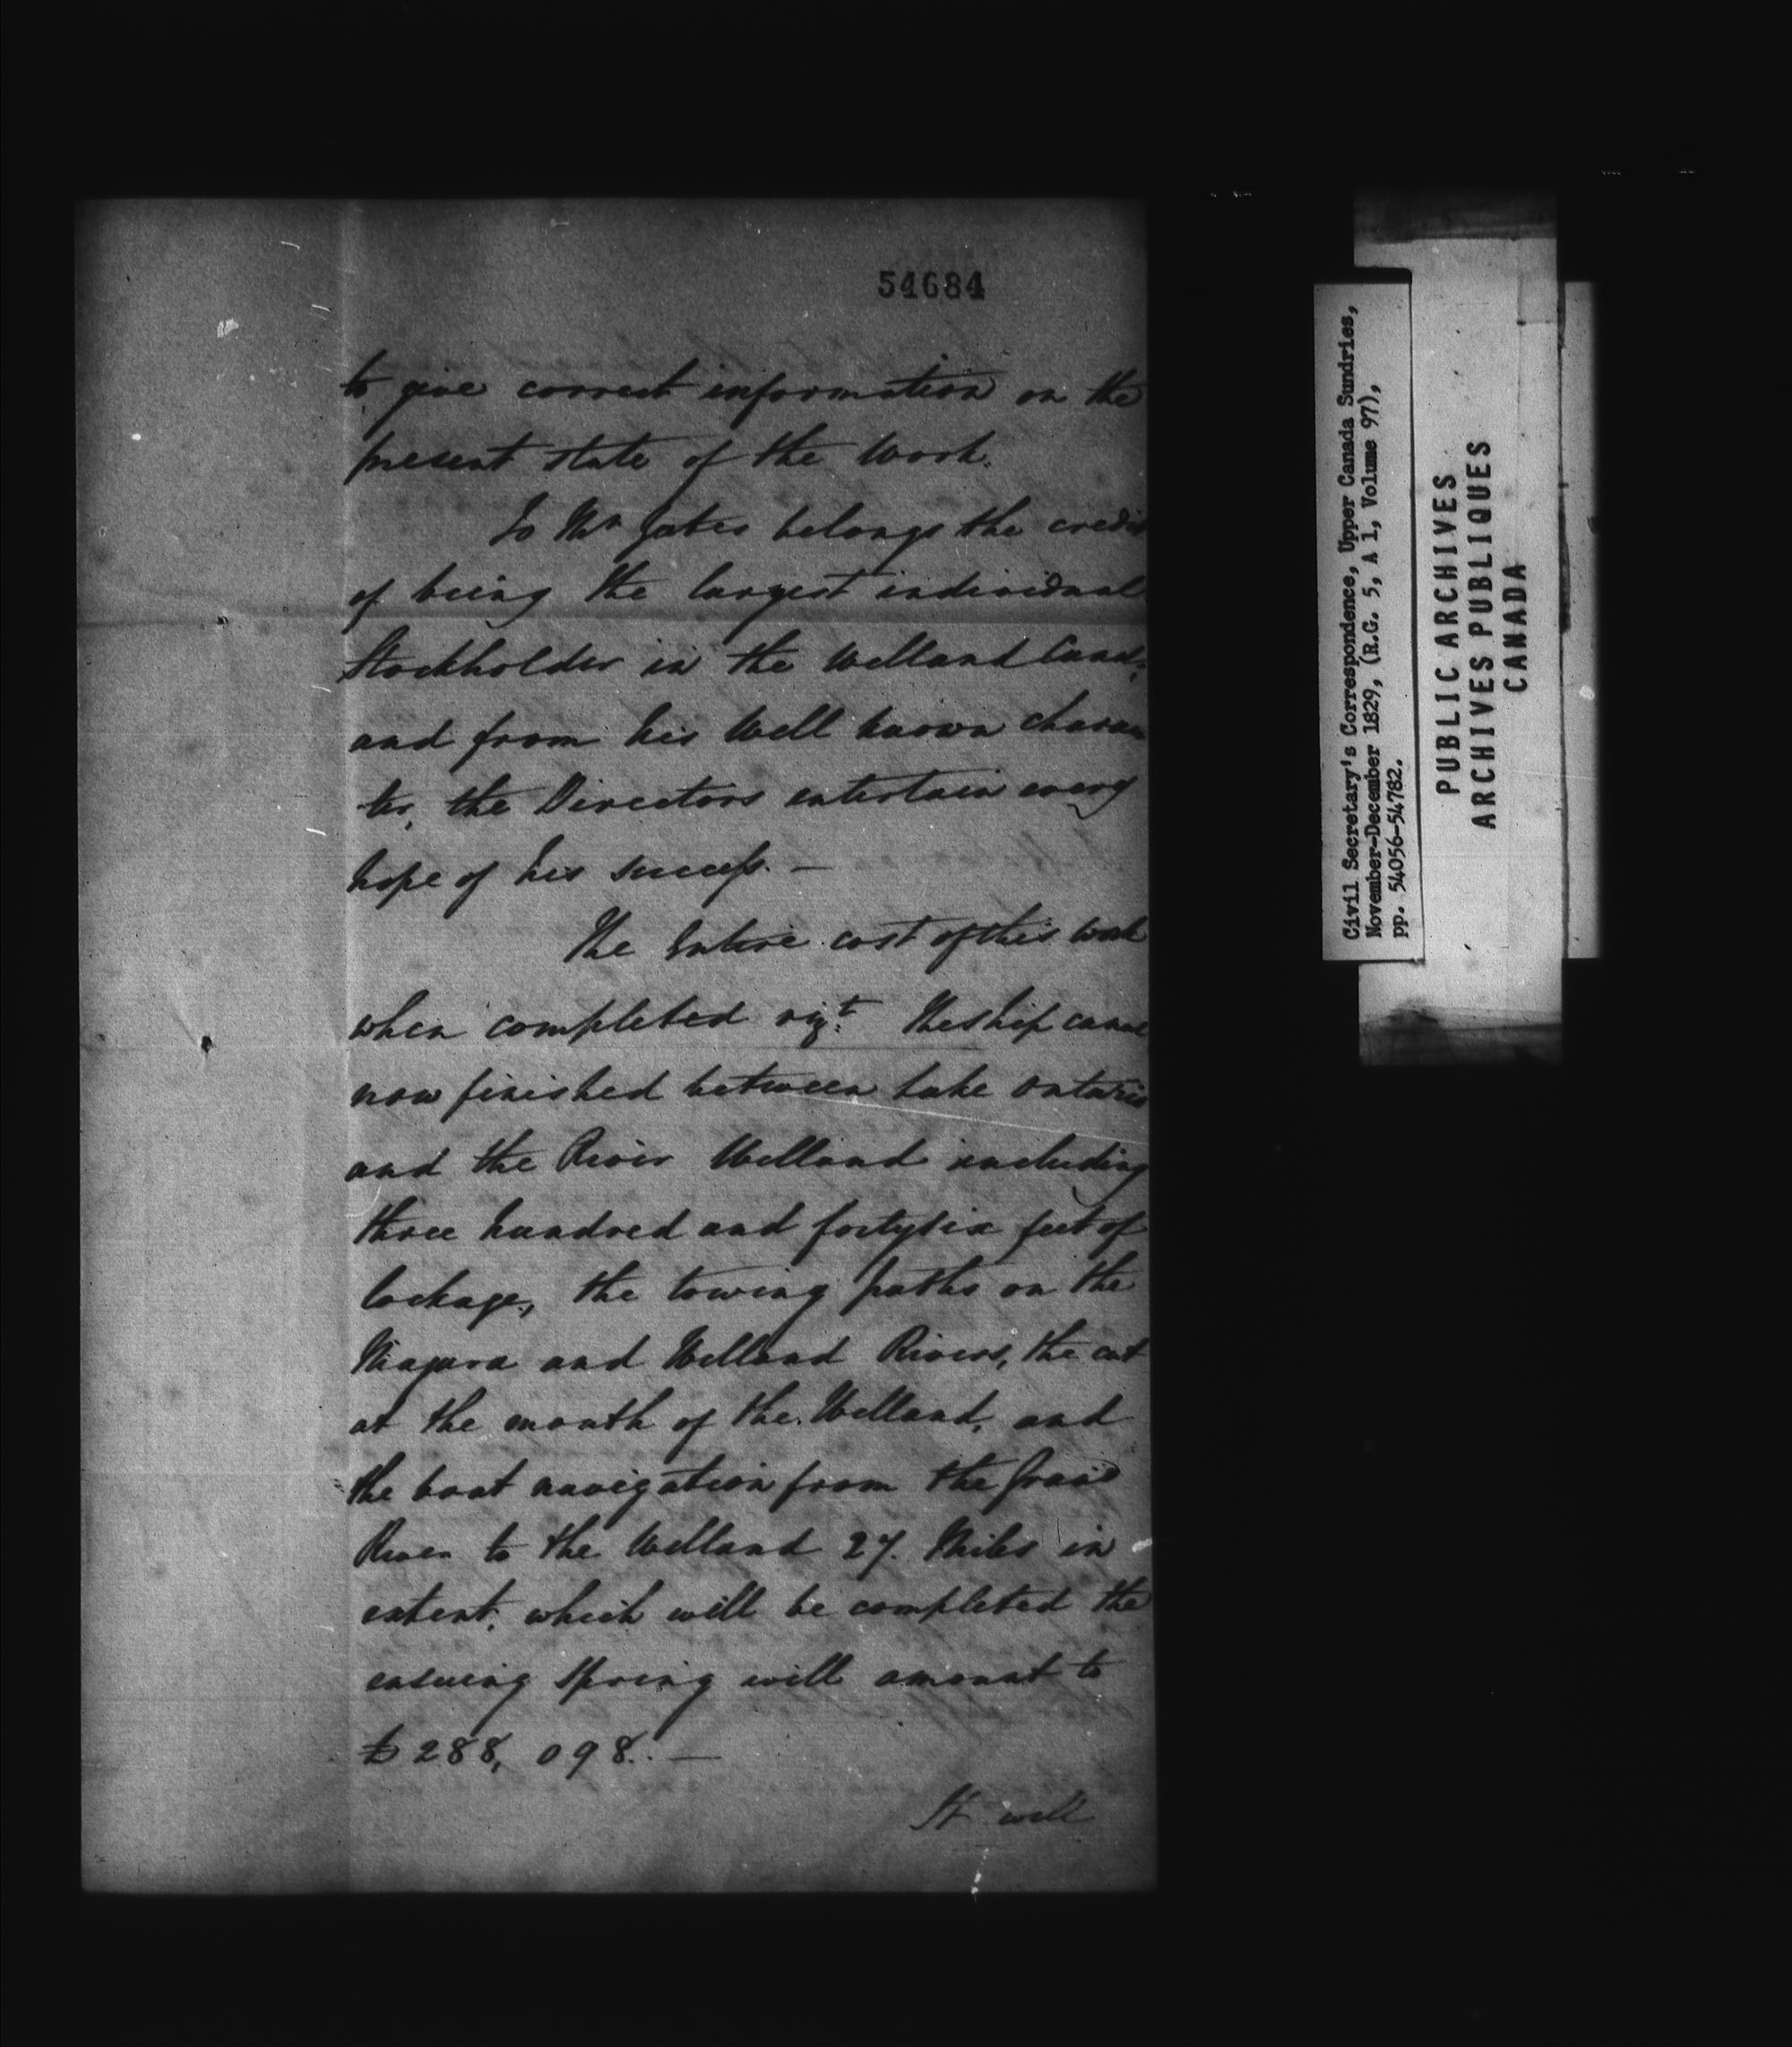 54684
to give correct information on the
present state of the Work.
To Mr Yates belongs the credit
of being the largest individual
Stockholder in the Welland Canal,
and from his Well known charac
ter, the Directors entertain every
hope of his success. —
The Entire cost of this work
when completed vizt. The ship canal
now finished between Lake Ontario
and the River Welland including
three hundred and forty six feet of
lockage, the towing paths on the
Niagara and Welland Rivers, the cut
at the mouth of the Welland, and
the boat navigation from the Grand
River to the Welland 27. Miles in
extent, which will be completed the
ensuing Spring will amount to
£288,098. —
It will
Civil Secretary's Correspondence, Upper Canada Sundries,
November-December 1829, (R.G. 5, A 1, Volume 97),
pp. 54056-54782.
PUBLIC ARCHIVES
ARCHIVES PUBLIQUES
CANADA